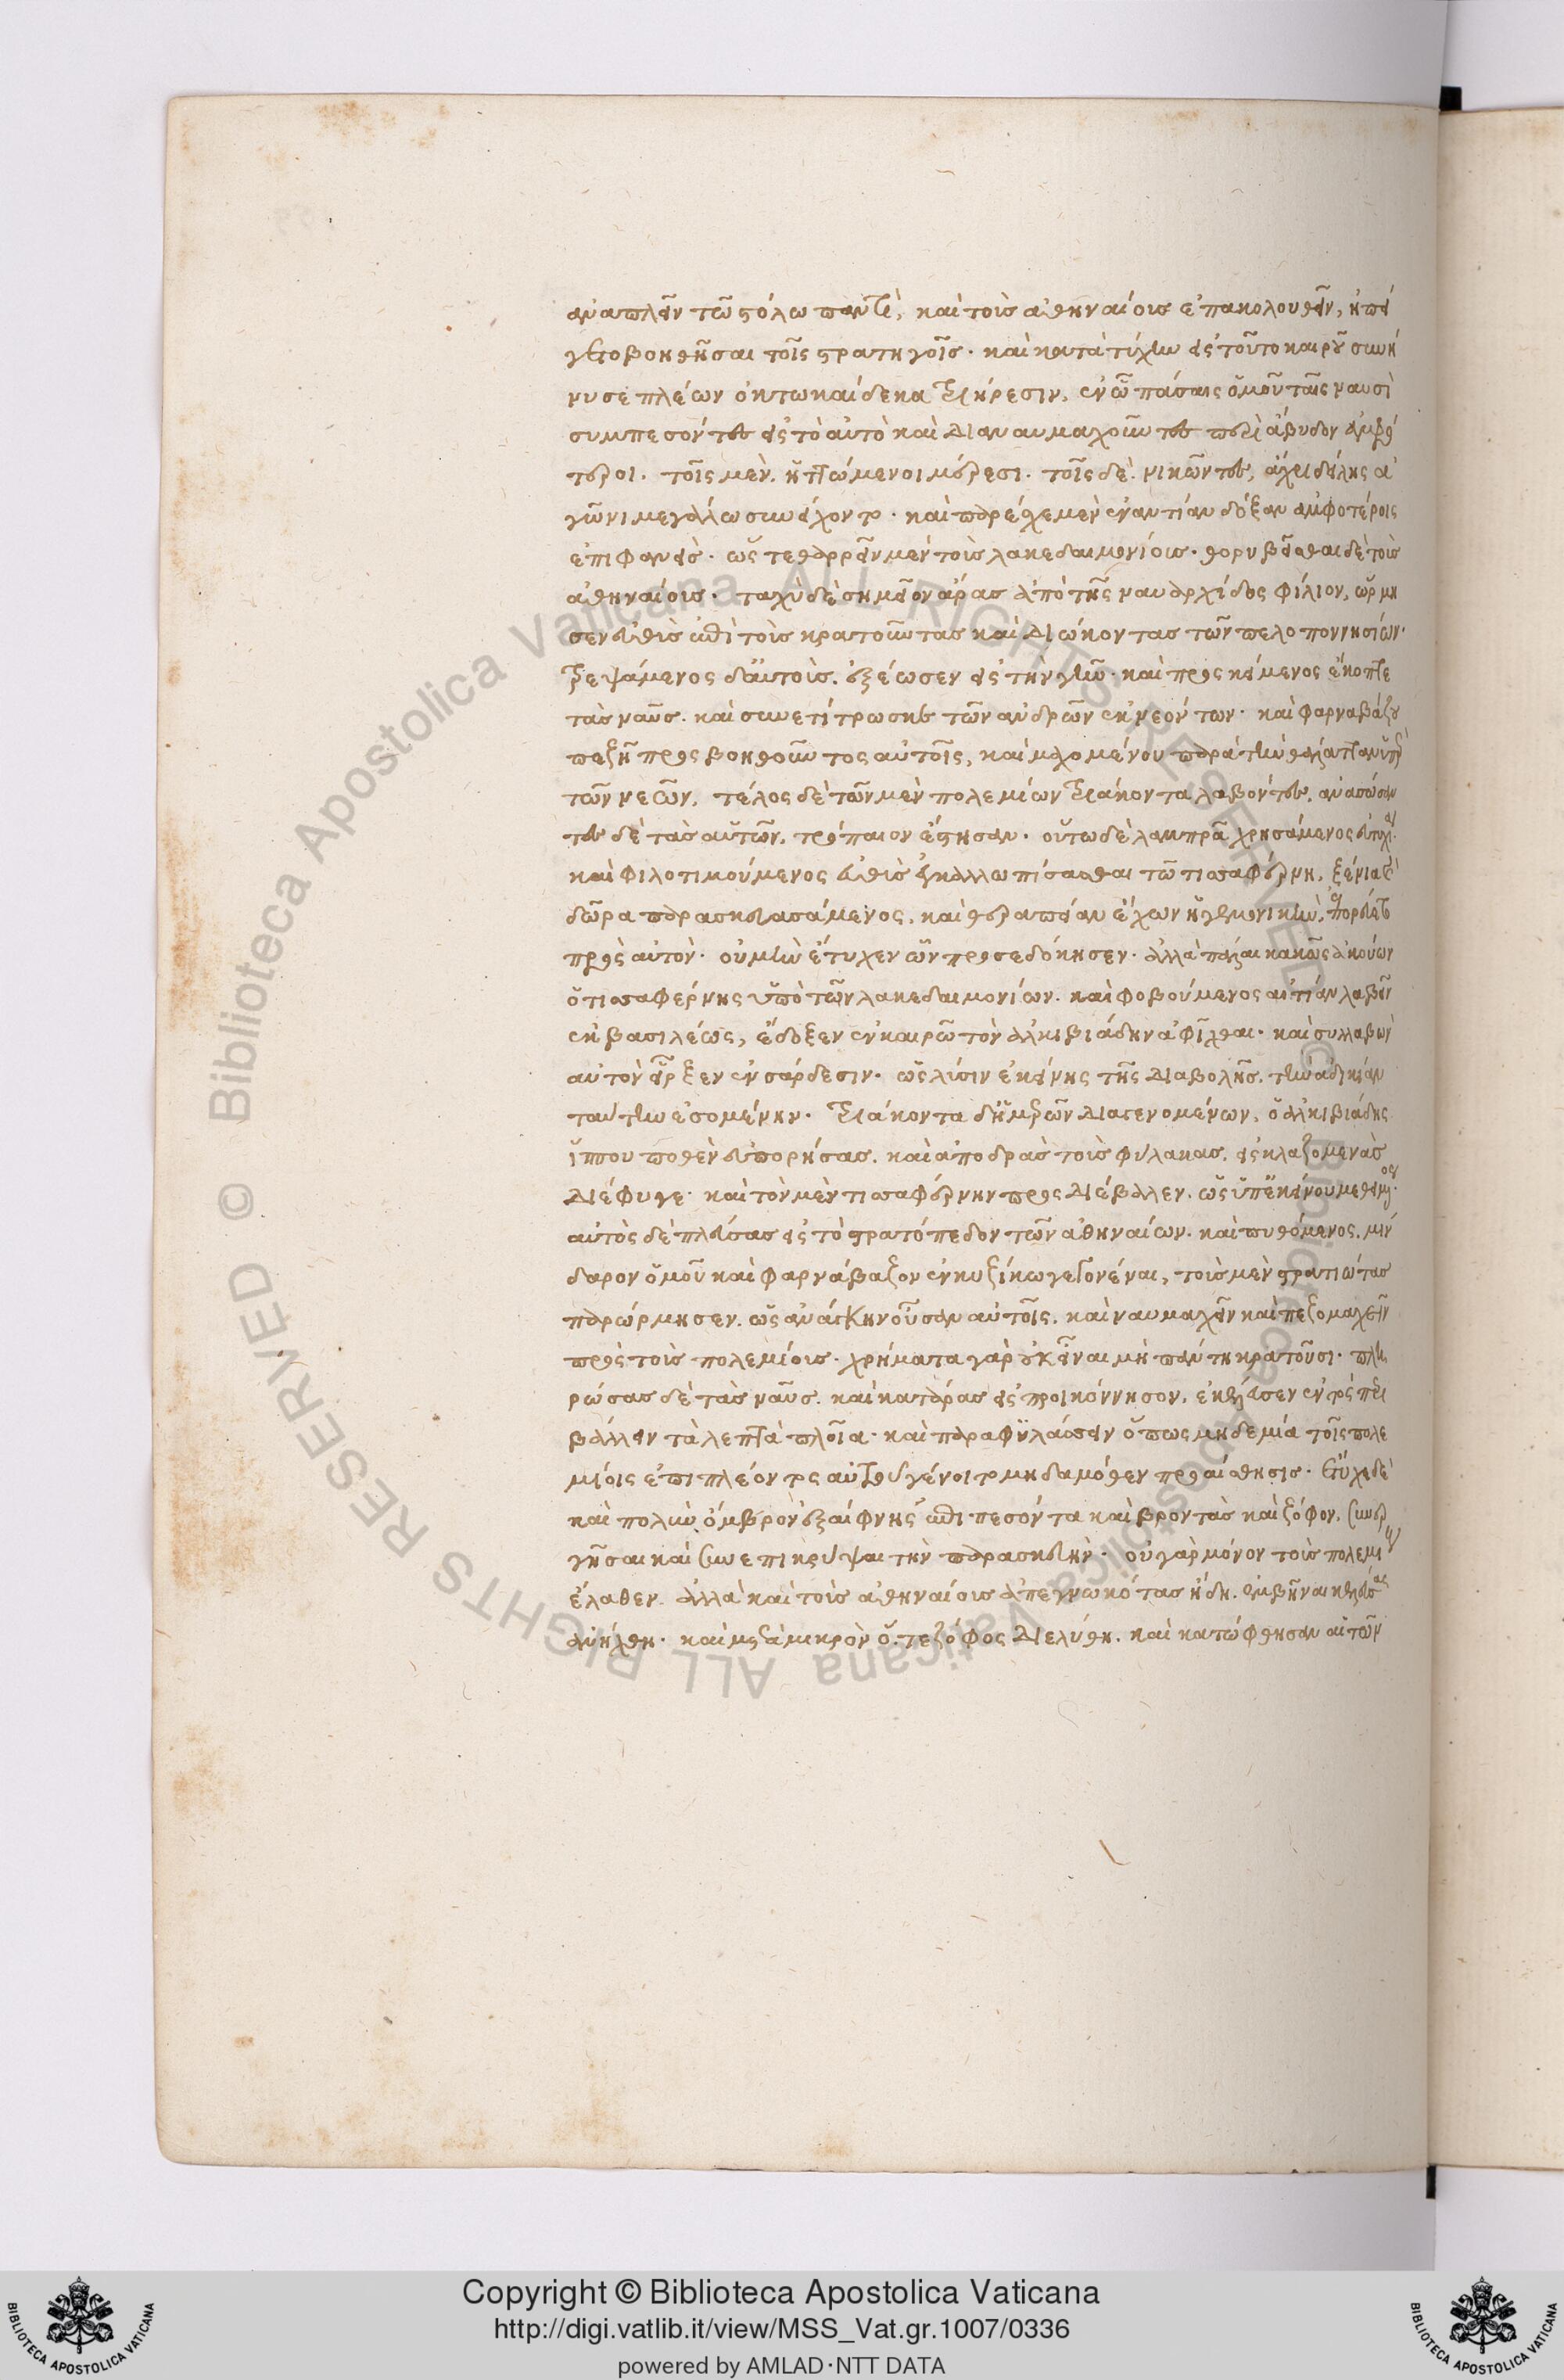 ἀναπλεῖν τῶ στόλω παντὶ, καὶ τοὺς ἀθηναίους ἐπακολουθεῖν, ἠπεί
γετο βοηθῆσαι τοῖς στρατηγοῖς· καὶ κατὰ τύχην εἰς τοῦτο καιροῦ συνή
νυσε πλέων ὀκτωκαίδεκα τριήρεσιν, ἐν ὧ πάσαις ὁμοῦ ταῖς ναυσὶ
συμπεσόντες εἰς τὸ αὐτὸ καὶ διαναυμαχοῦντες περὶ ἄβυδον ἀμφό
τεροι. τοῖς μὲν. ἡττώμενοι μέρεσι. τοῖς δὲ. νικῶντες, ἄχρι δείλης ἀ
γῶνι μεγάλω συνείχοντο· καὶ παρέσχε μὲν ἐναντίαν δόξαν ἀμφοτέροις
ἐπιφανείς· ὥς τε θαρρεῖν μὲν τοὺς λακεδαιμονίους· θορυβεῖσθαι δὲ τοὺς
ἀθηναίους· ταχὺ δὲ σημεῖον ἄρας ἀπὸ τῆς ναυαρχίδος φίλιον, ὥρμη
σεν εὐθὺς ἐπὶ τοὺς κρατοῦντας καὶ διώκοντας τῶν πελοποννησίων·
τρεψάμενος δ' αὐτοὺς. ἐξέωσεν εἰς τὴν γῆν· καὶ προσκείμενος ἔκοπτε
τὰς ναῦς. καὶ συνετίτρωσκε τῶν ἀνδρῶν ἐκνεόντων· καὶ φαρναβάζου
πεζῆ προσβοηθοῦντος αὐτοῖς, καὶ μαχομένου παρὰ τὴν θάλατταν ὑπὲρ
τῶν νεῶν, τέλος δὲ τῶν μὲν πολεμίων τριάκοντα λαβόντες, ἀνασώσαν
τες δὲ τὰς αὑτῶν, τρόπαιον ἔστησαν· οὕτω δὲ λαμπρᾶ χρησάμενος εὐτυχία
καὶ φιλοτιμούμενος εὐθὺς ἐγκαλλωπίσασθαι τῶ τισσαφέρνη, ξένια καὶ
δῶρα παρασκευασάμενος, καὶ θεραπείαν ἔχων ἡγεμονικὴν, ἐπορεύετο
πρὸς αὐτόν· οὐ μὴν ἔτυχεν ὧν προσεδόκησεν· ἀλλὰ πάλαι κακῶς ἀκούων
ὁ τισσαφέρνης ὑπὸ τῶν λακεδαιμονίων. καὶ φοβούμενος αἰτίαν λαβεῖν
ἐκ βασιλέως, ἔδοξεν ἐν καιρῶ τὸν ἀλκιβιάδην ἀφῖχθαι· καὶ συλλαβὼν
αὐτὸν εἷρξεν ἐν σάρδεσιν· ὡς λύσιν ἐκείνης τῆς διαβολῆς. τὴν ἀδικίαν
ταύτην ἐσομένην· τριάκοντα δ' ἡμερῶν διαγενομένων, ὁ ἀλκιβιάδης
ἵππου ποθὲν εὐπορήσας. καὶ ἀποδρὰς τοὺς φύλακας. εἰς κλαζομενὰς
διέφυγε· καὶ τὸν μὲν τισσαφέρνην προσδιέβαλλεν. ὡς ὑπ' ἐκείνου μεθειμένος·
αὐτὸς δὲ πλεύσας εἰς τὸ στρατόπεδον τῶν ἀθηναίων. καὶ πυθόμενος. μίν
δαρον ὁμοῦ καὶ φαρνάβαζον ἐν κυζίκω γεγονέναι, τοὺς μὲν στρατιώτας
παρώρμησεν. ὡς ἀνάγκην οὖσαν αὐτοῖς. καὶ ναυμαχεῖν καὶ πεζομαχεῖν
πρὸς τοὺς πολεμίους· χρήματα γὰρ οὐκ εἶναι μὴ πάντη κρατοῦσι· πλη
ρώσας δὲ τὰς ναῦς. καὶ κατάρας εἰς προικόννησον, ἐκέλευσεν ἐντὸς περι
βάλλειν τὰ λεπτὰ πλοῖα· καὶ παραφυλάσσειν ὅπως μηδεμία τοῖς πολε
μίοις ἐπιπλέοντος αὐτοῦ γένοιτο μηδαμόθεν προαίσθησις· ἔτυχε δὲ
καὶ πολὺν ὄμβρον ἐξαίφνης ἐπιπεσόντα καὶ βροντὰς καὶ ζόφον, συνερ
γῆσαι καὶ συνεπικρύψαι τὴν παρασκευὴν· οὐ γὰρ μόνον τοὺς πολεμίους
ἔλαθεν. ἀλλὰ καὶ τοὺς ἀθηναίους ἀπεγνωκότας ἤδη. ἐμβῆναι κελεύσας
ἀνήχθη· καὶ μετὰ μικρὸν ὅ. τε ζόφος διελύθη. καὶ κατώφθησαν αἱ τῶν
Copyright © Biblioteca Apostolica Vaticana
http://digi.vatlib.it/view/MSS_Vat.gr.1007/0336
powered by AMLAD·NTT DATA